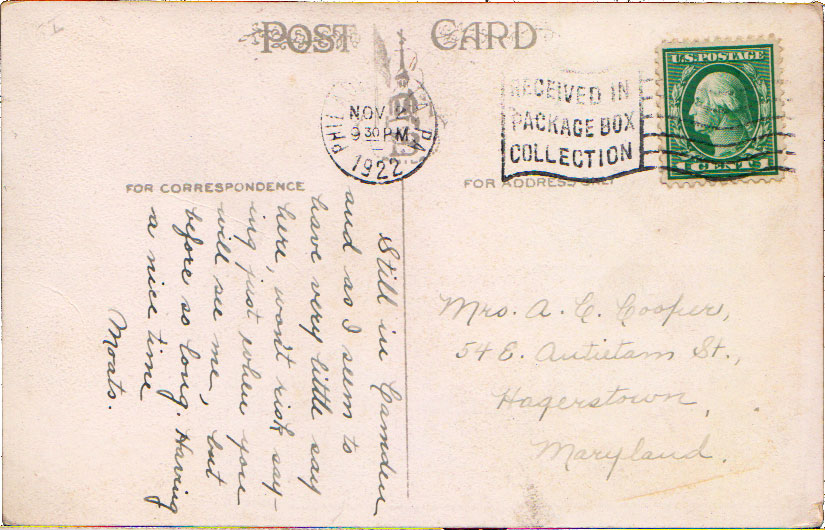 POST CARD
PHILADELPHIA PA
NOV 2
9 30 PM
1922
RECEIVED IN
PACKAGE BOX
COLLECTION
U.S. POSTAGE
CENTS
FOR CORRESPONDENCE
FOR ADDRESS ONLY
Still in Camden
and as I seem to
have very little say
here, won't risk say-
ing just when you
will see me, but
before so long. Having
a nice time
Moats.
Mrs. A. C. Cooper,
54 E. Antietam St.,
Hagerstown,
Maryland.